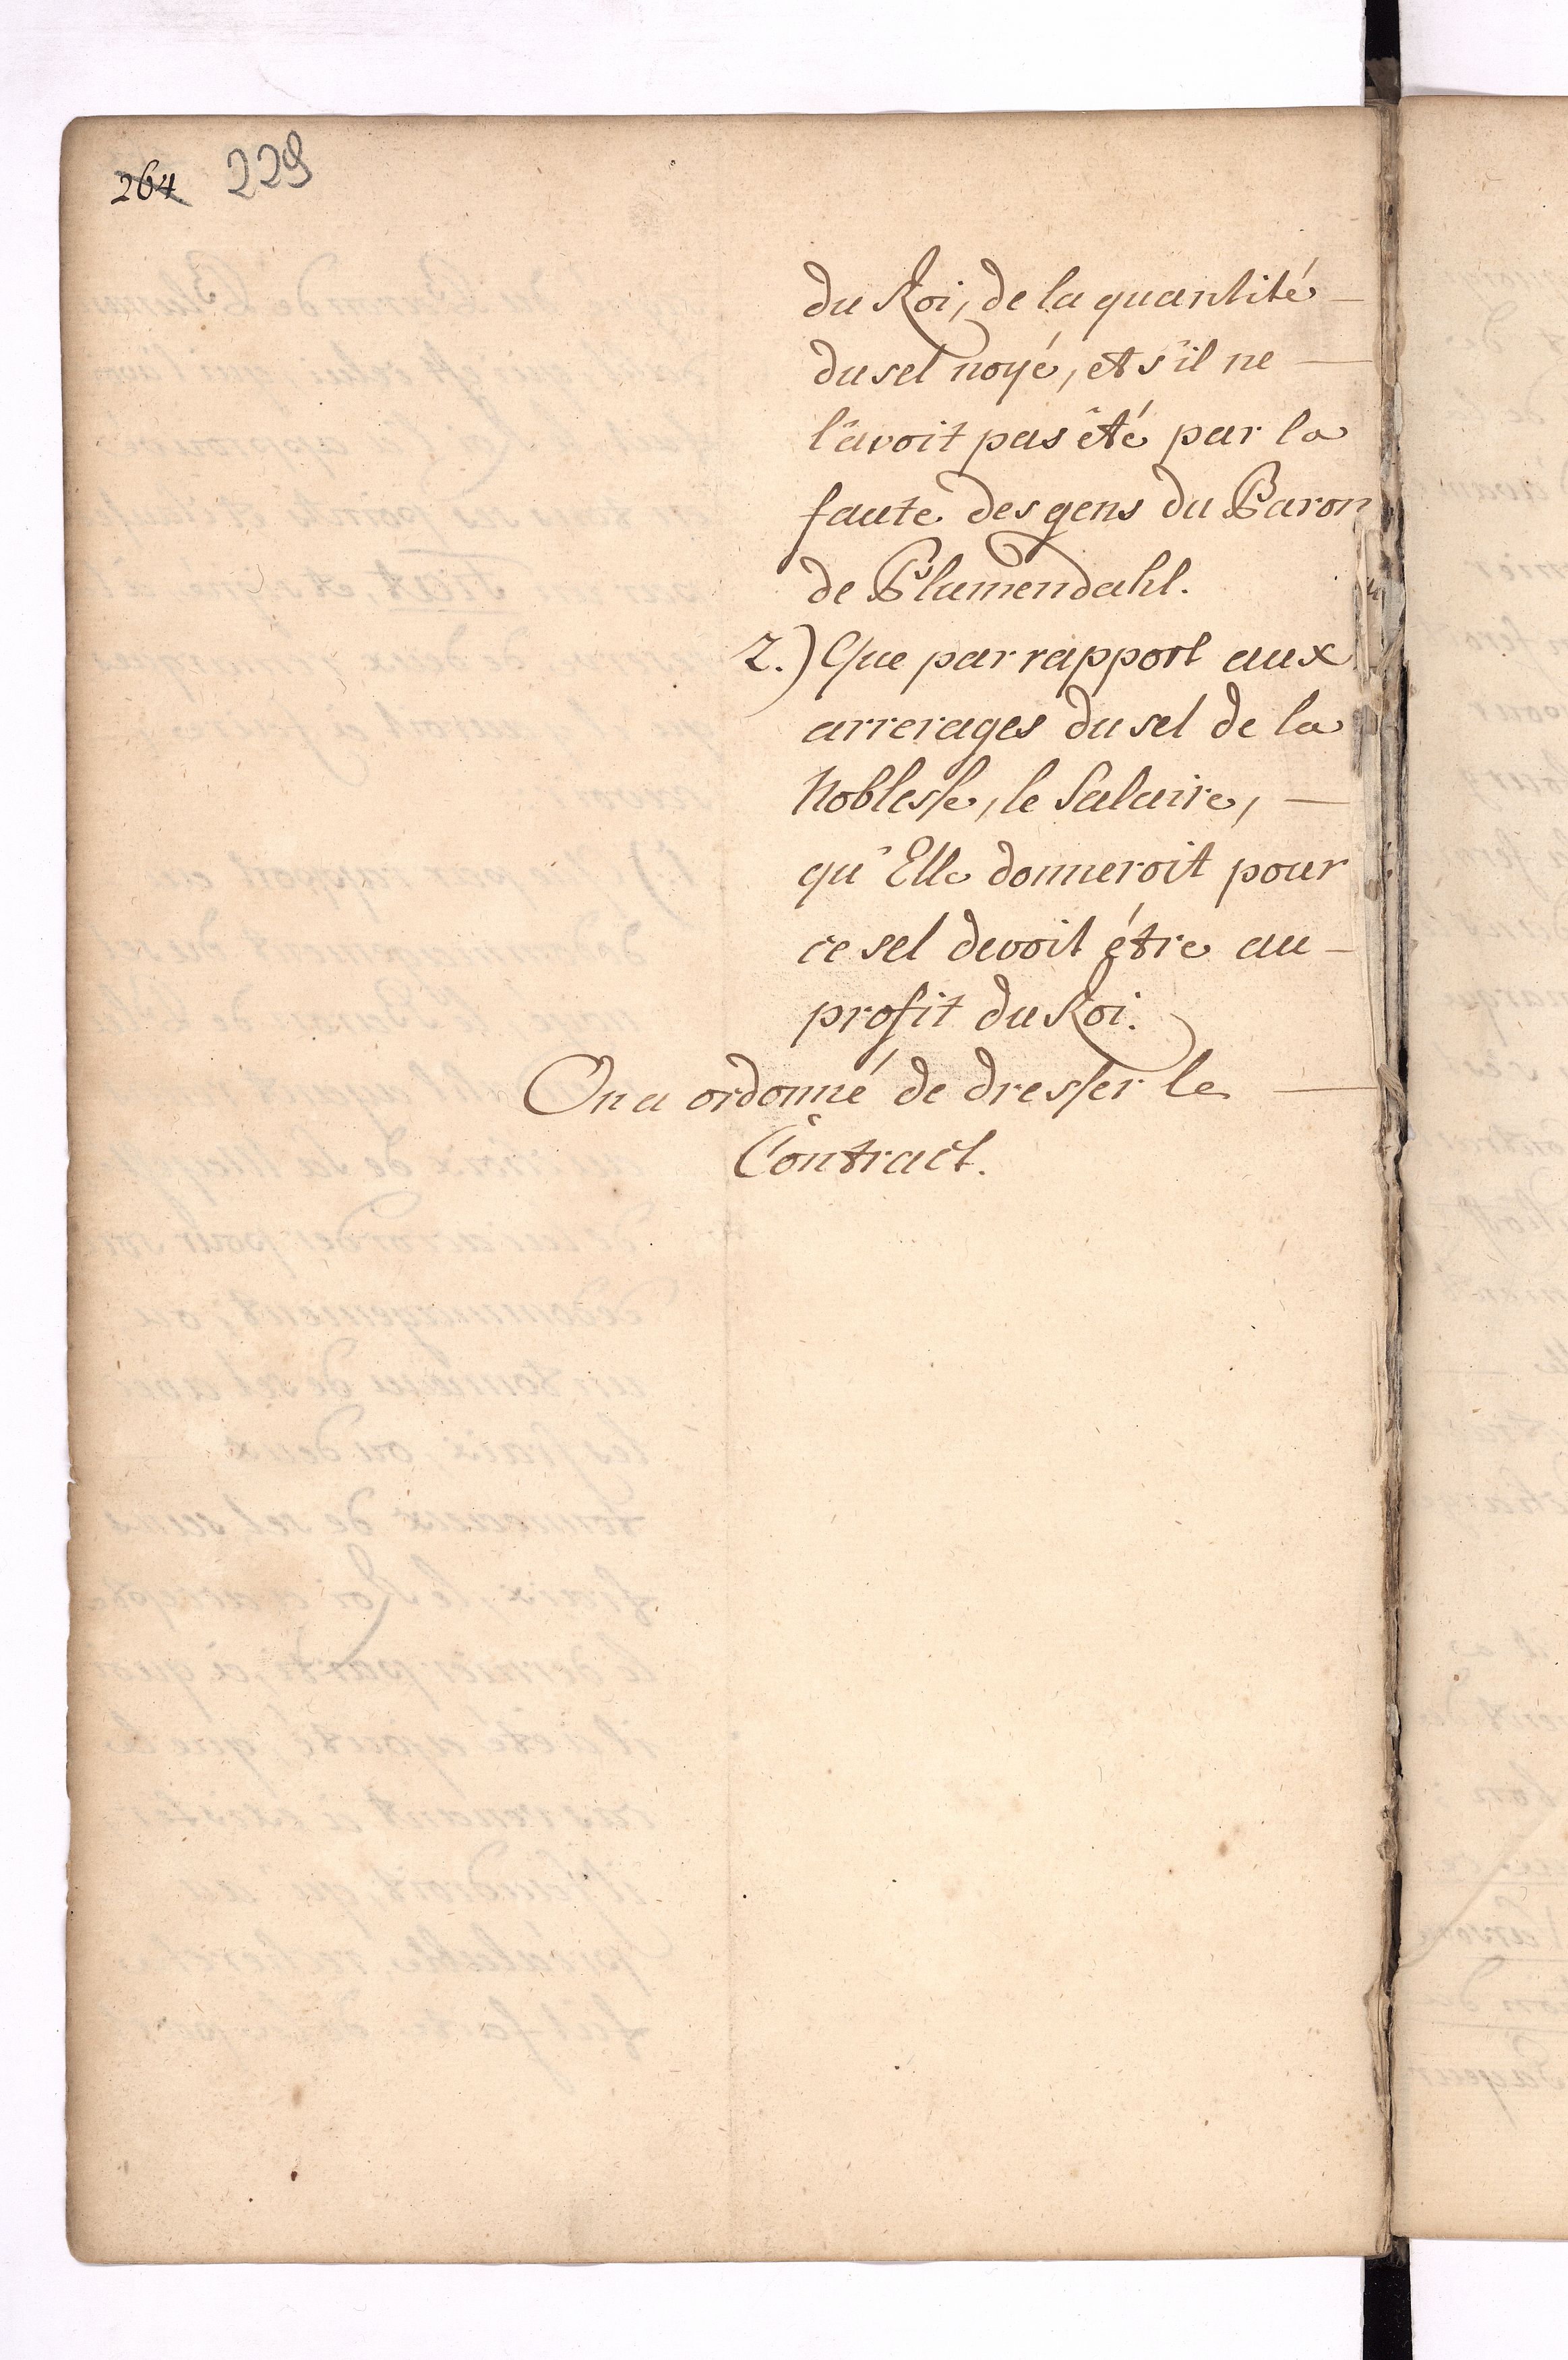 264 229
du Roi, de la quantité —
du sel noyé, et s'il ne —
l'avoit pas êté par la
faute des gens du Baron
de Blumendahl.
2.) Que par rapport aux
arrerages du sel de la
Noblesse, le Salaire, —
qu'Elle donneroit pour
ce sel devoit étre au —
profit du Roi.
On a ordonné de dresser le —
Contract.